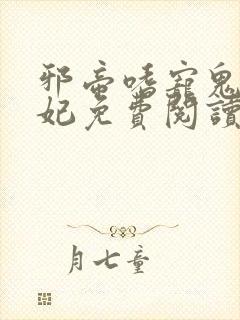 邪帝嗜寵鬼
妃免費閱讀
月七童